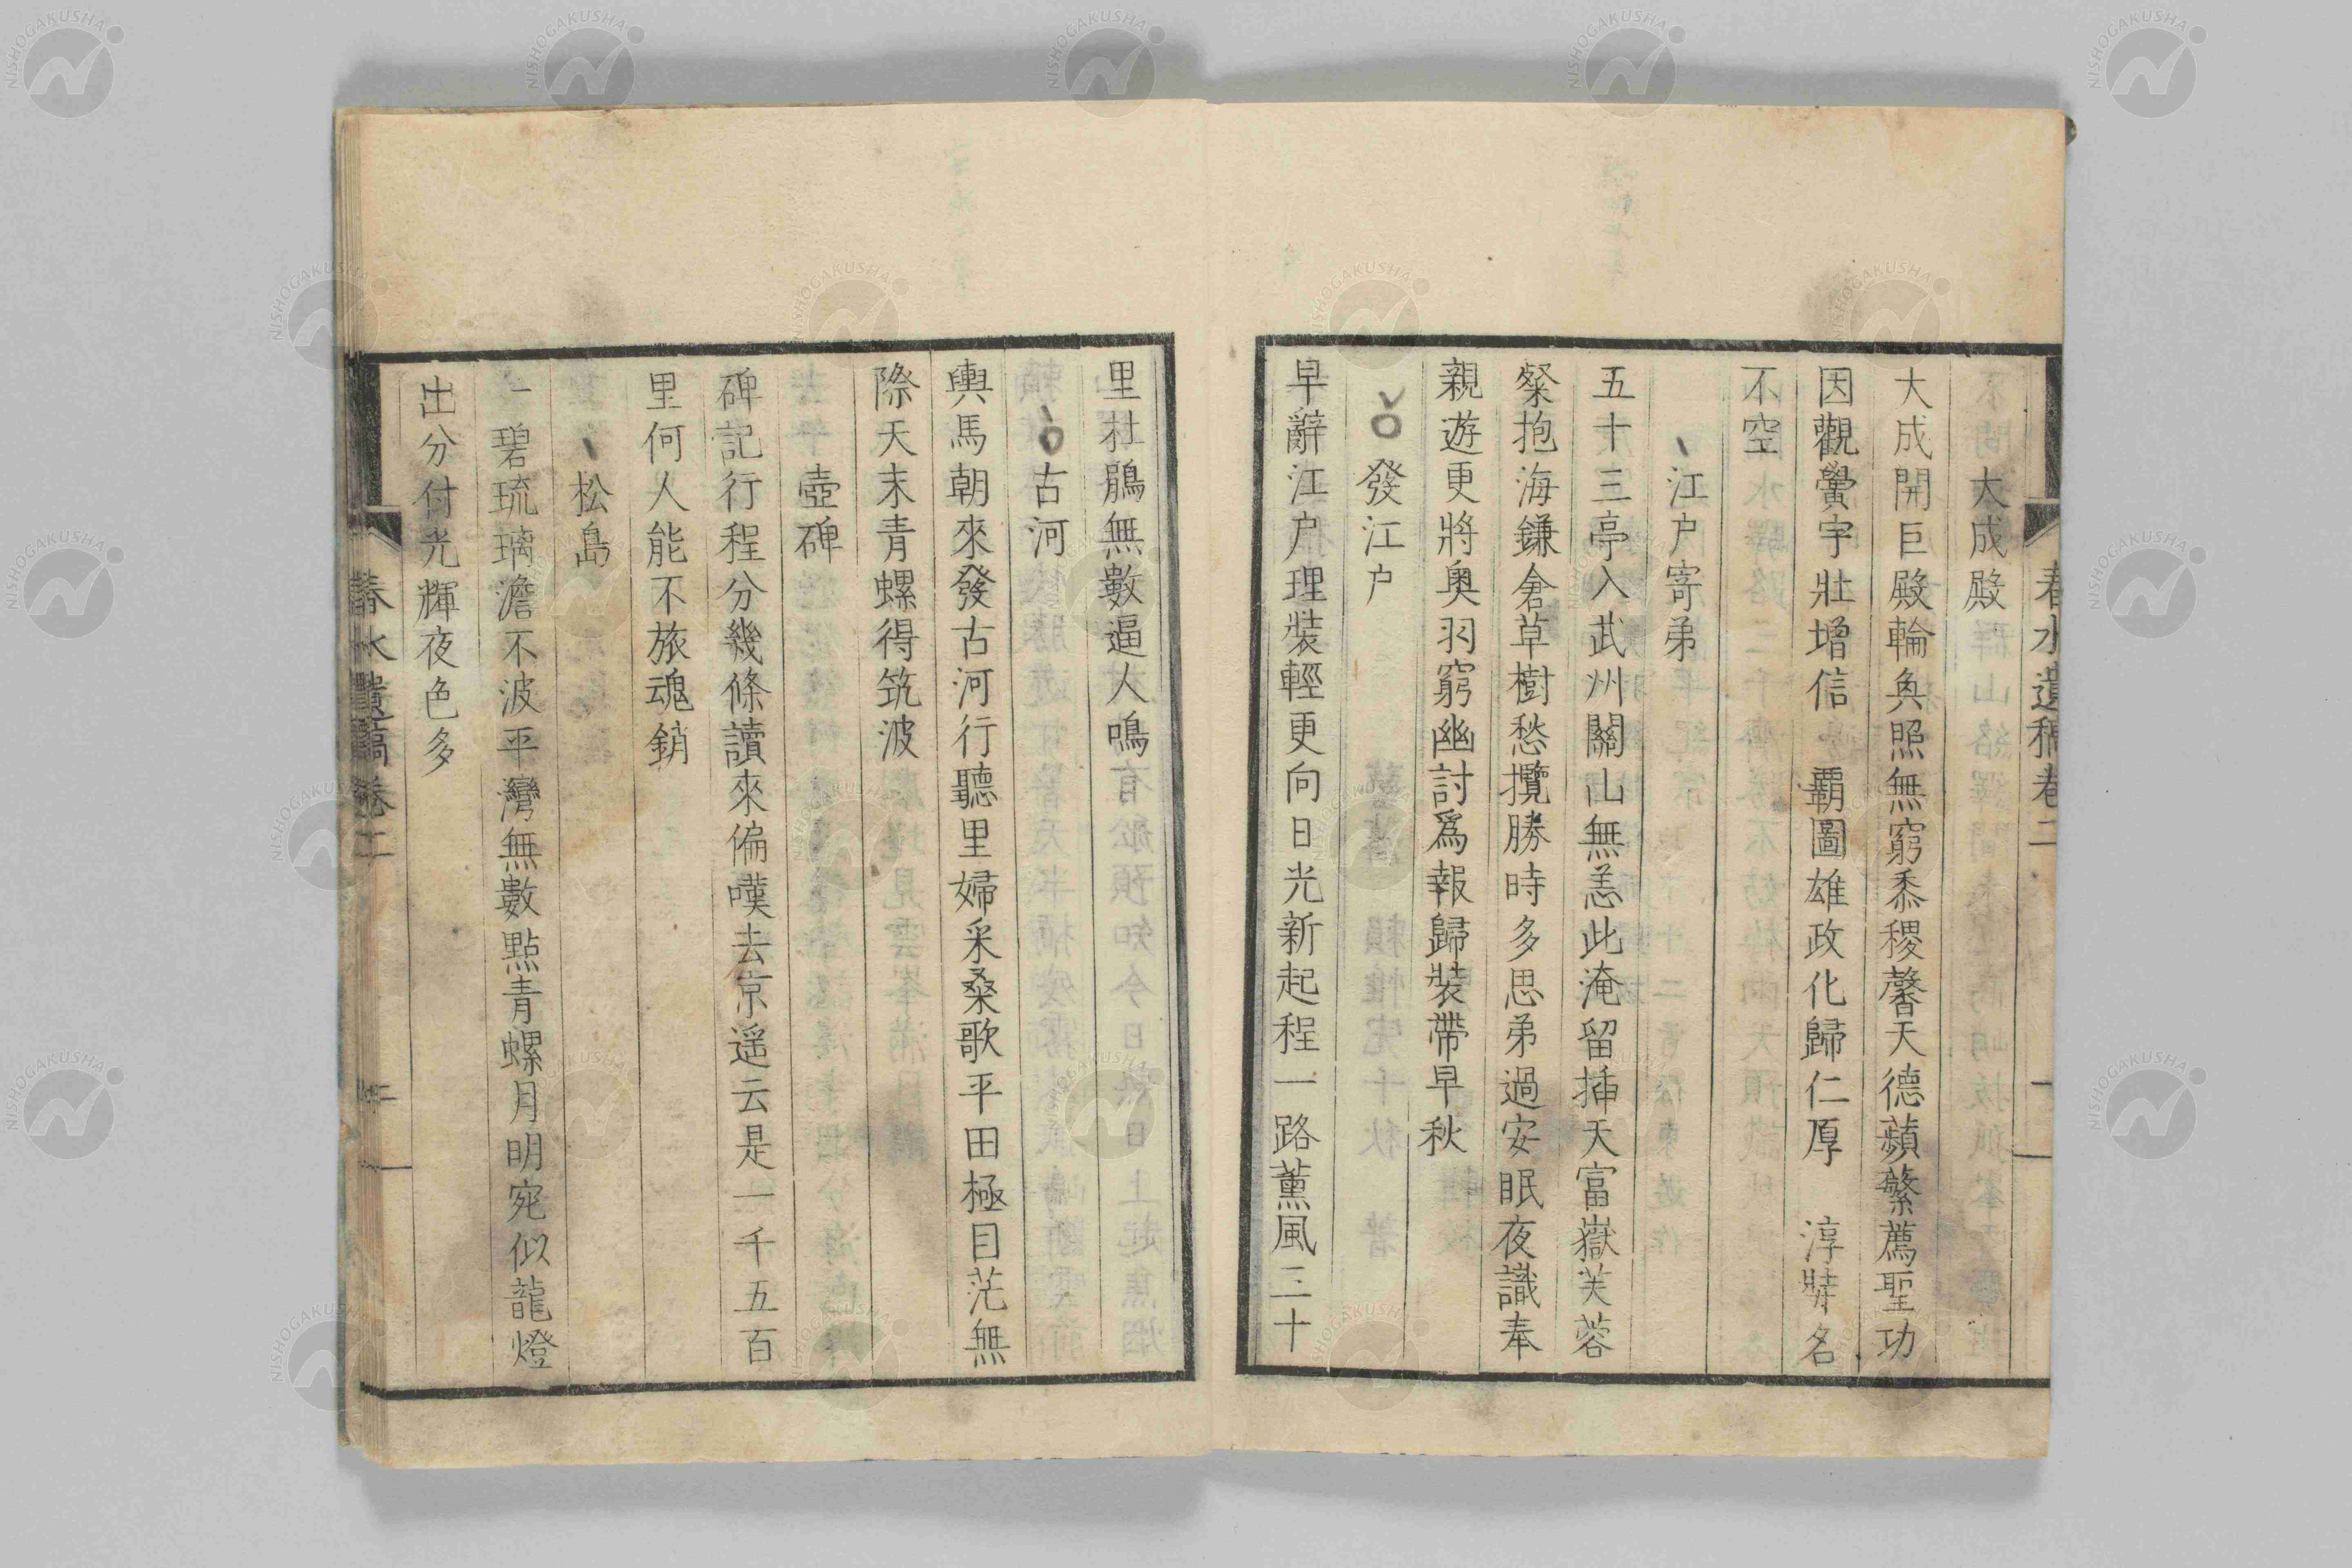 春水遺稿卷二
大成殿
大成開巨殿輪奐照無窮黍稷馨天德蘋蘩薦聖功
因觀黌宇壯增信 覇圖雄政化歸仁厚 淳
名
不空
江戸寄弟
五十三亭入武州關山無恙此淹留插天富嶽芙蓉
粲抱海鎌倉草樹愁攬勝時多思弟過安眠夜識奉
親遊更將奥羽窮幽討爲報歸裝帶早秋
發江戸
早辭江戸理裝輕更向日光新起程一路薫風三十
里杜鵑無數逼人鳴
古河
輿馬朝來發古河行聽里婦采桑歌平田極目茫無
際天末青螺得筑波
壺碑
碑記行程分幾條讀來偏嘆去京遥云是一千五百
里何人能不旅魂銷
松島
一碧琉璃澹不波平灣無數點青螺月明宛似龍燈
出分付光輝夜色多
春水遺稿卷二